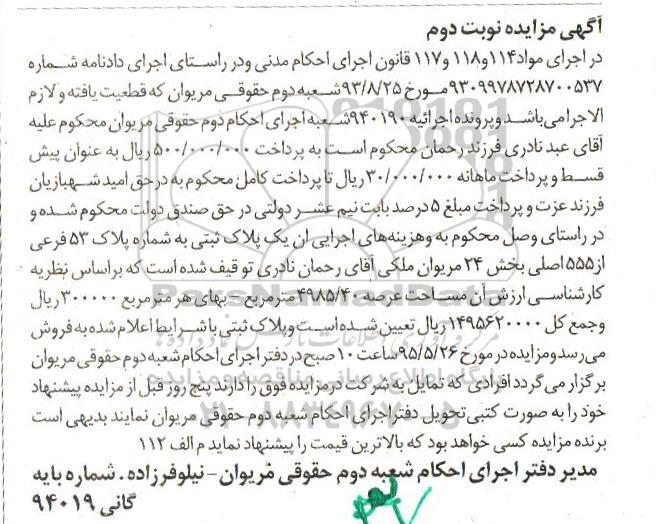 آگهی مزایده نوبت دوم
در اجرای مواد ۱۱۴و ۱۱۸ و ۱۱۷ قانون اجرای احکام مدنی ودر راستای اجرای دادنامه شماره
۹۳۰۹۹۷۸۷۲۸۷۰۰۵۳۷مـورخ ۹۳/۸/۲۵شـعبه دوم حقوقـی مریوان که قطعیت یافته و لازم
الاجرا می‌باشد و پرونده اجرائیه ۹۴۰۱۹۰شـعبه اجرای احکام دوم حقوقی مریوان محکوم علیه
آقای عبد نادری فرزند رحمان محکوم است به پرداخت ۵۰۰/۰۰۰/۰۰۰ ریال به عنوان پیش
قسـط و پرداخت ماهانه ۳۰/۰۰۰/۰۰۰ ریال تا پرداخت کامل محکوم به در حق امید شـهبازیان
فرزند عزت و پرداخت مبلغ ۵درصد بابت نیم عشـر دولتی در حق صندق دولت محکوم شده و
در راستای وصل محکوم به وهزینه‌های اجرایی ان یک پلاک ثبتی به شماره پلاک ۵۳ فرعی
از ۵۵۵ اصلی بخش ۲۴ مریوان ملکی آقای رحمان نادری تو قیف شده است که براساس نظریه
کارشناسی ارزش آن مسـاحت عرصه ۴۹۸۵/۴۰مترمربع – بهای هر مترمربع ۳۰۰۰۰۰ ریال
و جمع کل ۱۴۹۵۶۲۰۰۰۰ ریال تعیین شـده‌است و پلاک ثبتی با شرایط اعلام شده به فروش
می‌رسد ومزایده در مورخ ۹۵/۵/۲۶ساعت ۱۰ صبح در دفتر اجرای احکام شعبه دوم حقوقی مریوان
برگزار می گردد افرادی که تمایل به شرکت در مزایده فوق را دارند پنج روز قبل از مزایده پیشنهاد
خود را به صورت کتبی تحویل دفتر اجرای احکام شعبه دوم حقوقی مریوان نمایند بدیهی است
برنده مزایده کسی خواهد بود که بالاترین قیمت را پیشنهاد نماید م الف ۱۱۲
مدیر دفتر اجرای احکام شعبه دوم حقوقی مریوان - نیلوفرزاده . شماره بایه
گانی ۹۴۰۱۹
ParsNamadData
۰۲۱-۸۸۳۴۹۶۷۰-۵